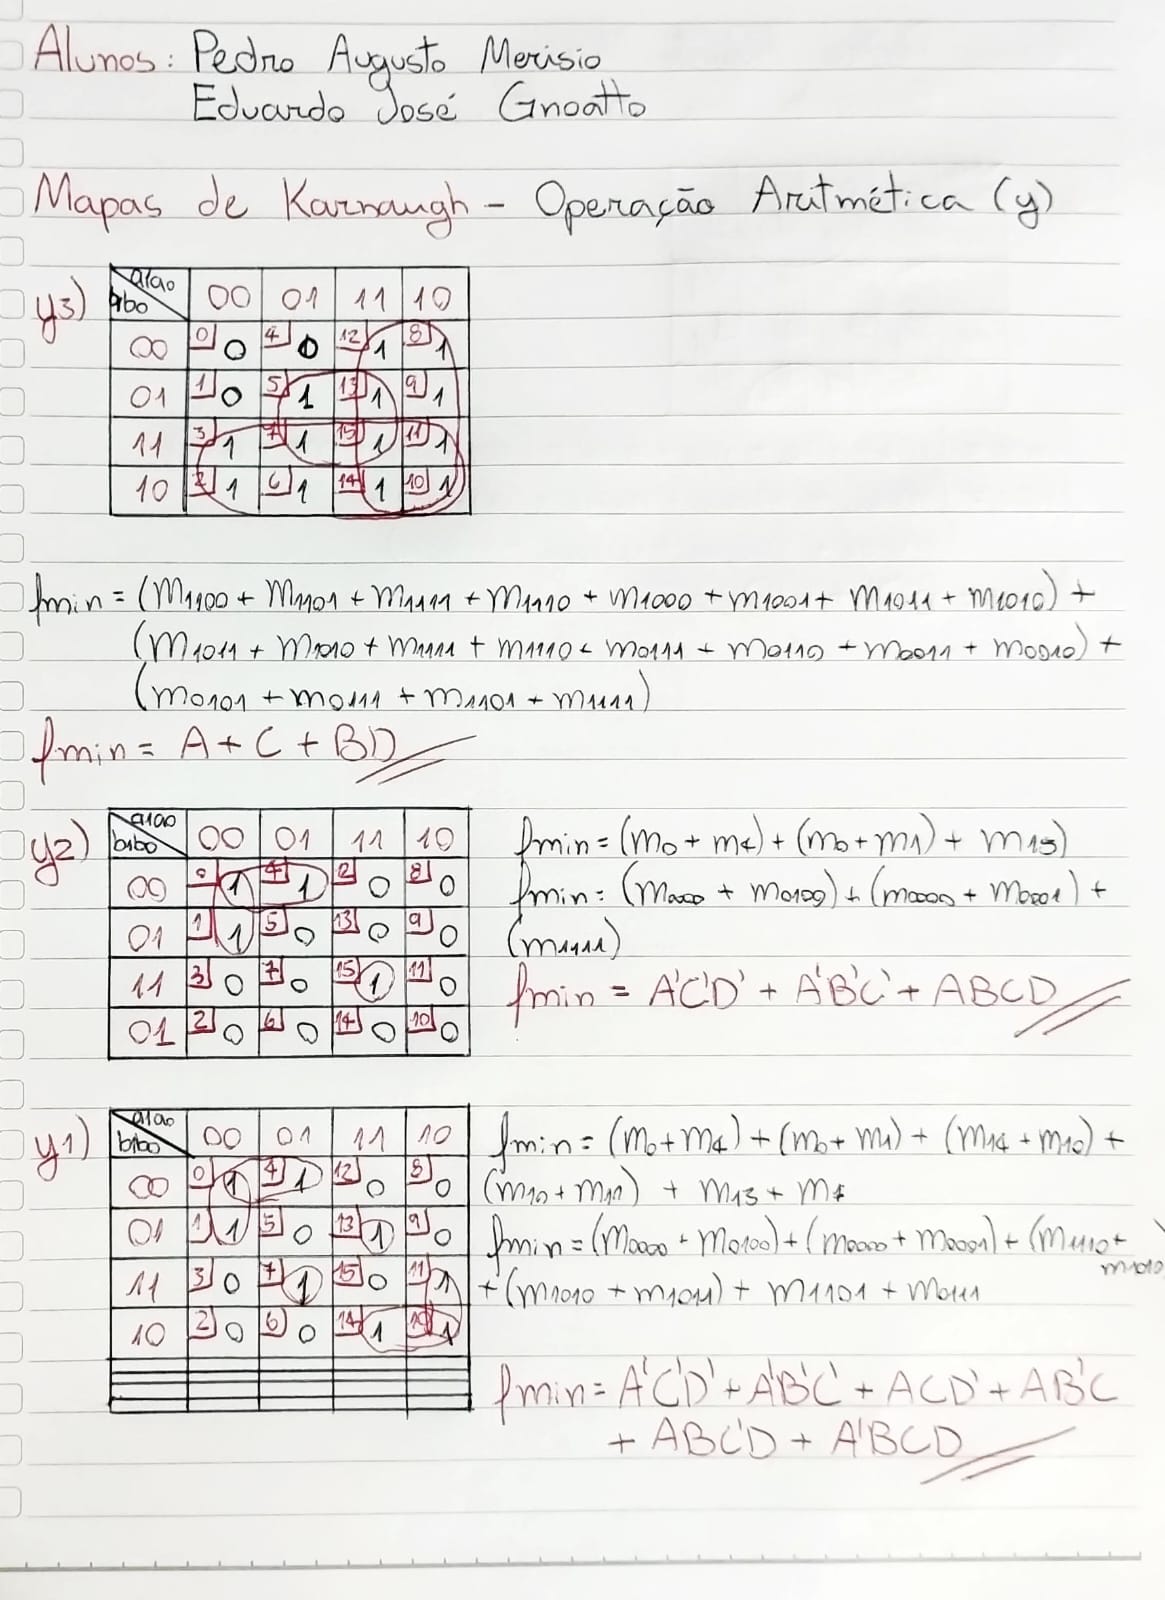 Alunos: Pedro Augusto Merisio
Eduardo José Gnoatto
Mapas de Karnaugh - Operação Aritmética (y)
y3)
a1a0
b1b0
00 01 11 10
00 0 0 4 0 12 1 8 1
01 1 0 5 1 13 1 9 1
11 3 1 7 1 15 1 11 1
10 2 1 6 1 14 1 10 1
fmin = (m1100 + m1101 + m1111 + m1110 + m1000 + m1001 + m1011 + m1010) +
(m1011 + m1010 + m1111 + m1110 + m0111 + m0110 + m0011 + m0010) +
(m0101 + m0111 + m1101 + m1111)
fmin = A + C + BD
y2)
a1a0
b1b0
00 01 11 10
00 0 1 4 1 12 0 8 0
01 1 1 5 0 13 0 9 0
11 3 0 7 0 15 1 11 0
01 2 0 6 0 14 0 10 0
fmin = (m0 + m4) + (m0 + m1) + m15)
fmin = (m0000 + m0100) + (m0000 + m0001) +
(m1111)
fmin = A'C'D' + A'B'C' + ABCD
y1)
a1a0
b1b0
00 01 11 10
00 0 1 4 1 12 0 8 0
01 1 1 5 0 13 1 9 0
11 3 0 7 1 15 0 11 1
10 2 0 6 0 14 1 10 1
fmin = (m0 + m4) + (m0 + m1) + (m14 + m10) +
(m10 + m11) + m13 + m7
fmin = (m0000 + m0100) + (m0000 + m0001) + (m1110 +
m1010)
+ (m1010 + m1011) + m1101 + m0111
fmin = A'C'D' + A'B'C' + ACD' + AB'C
+ ABC'D + A'BCD